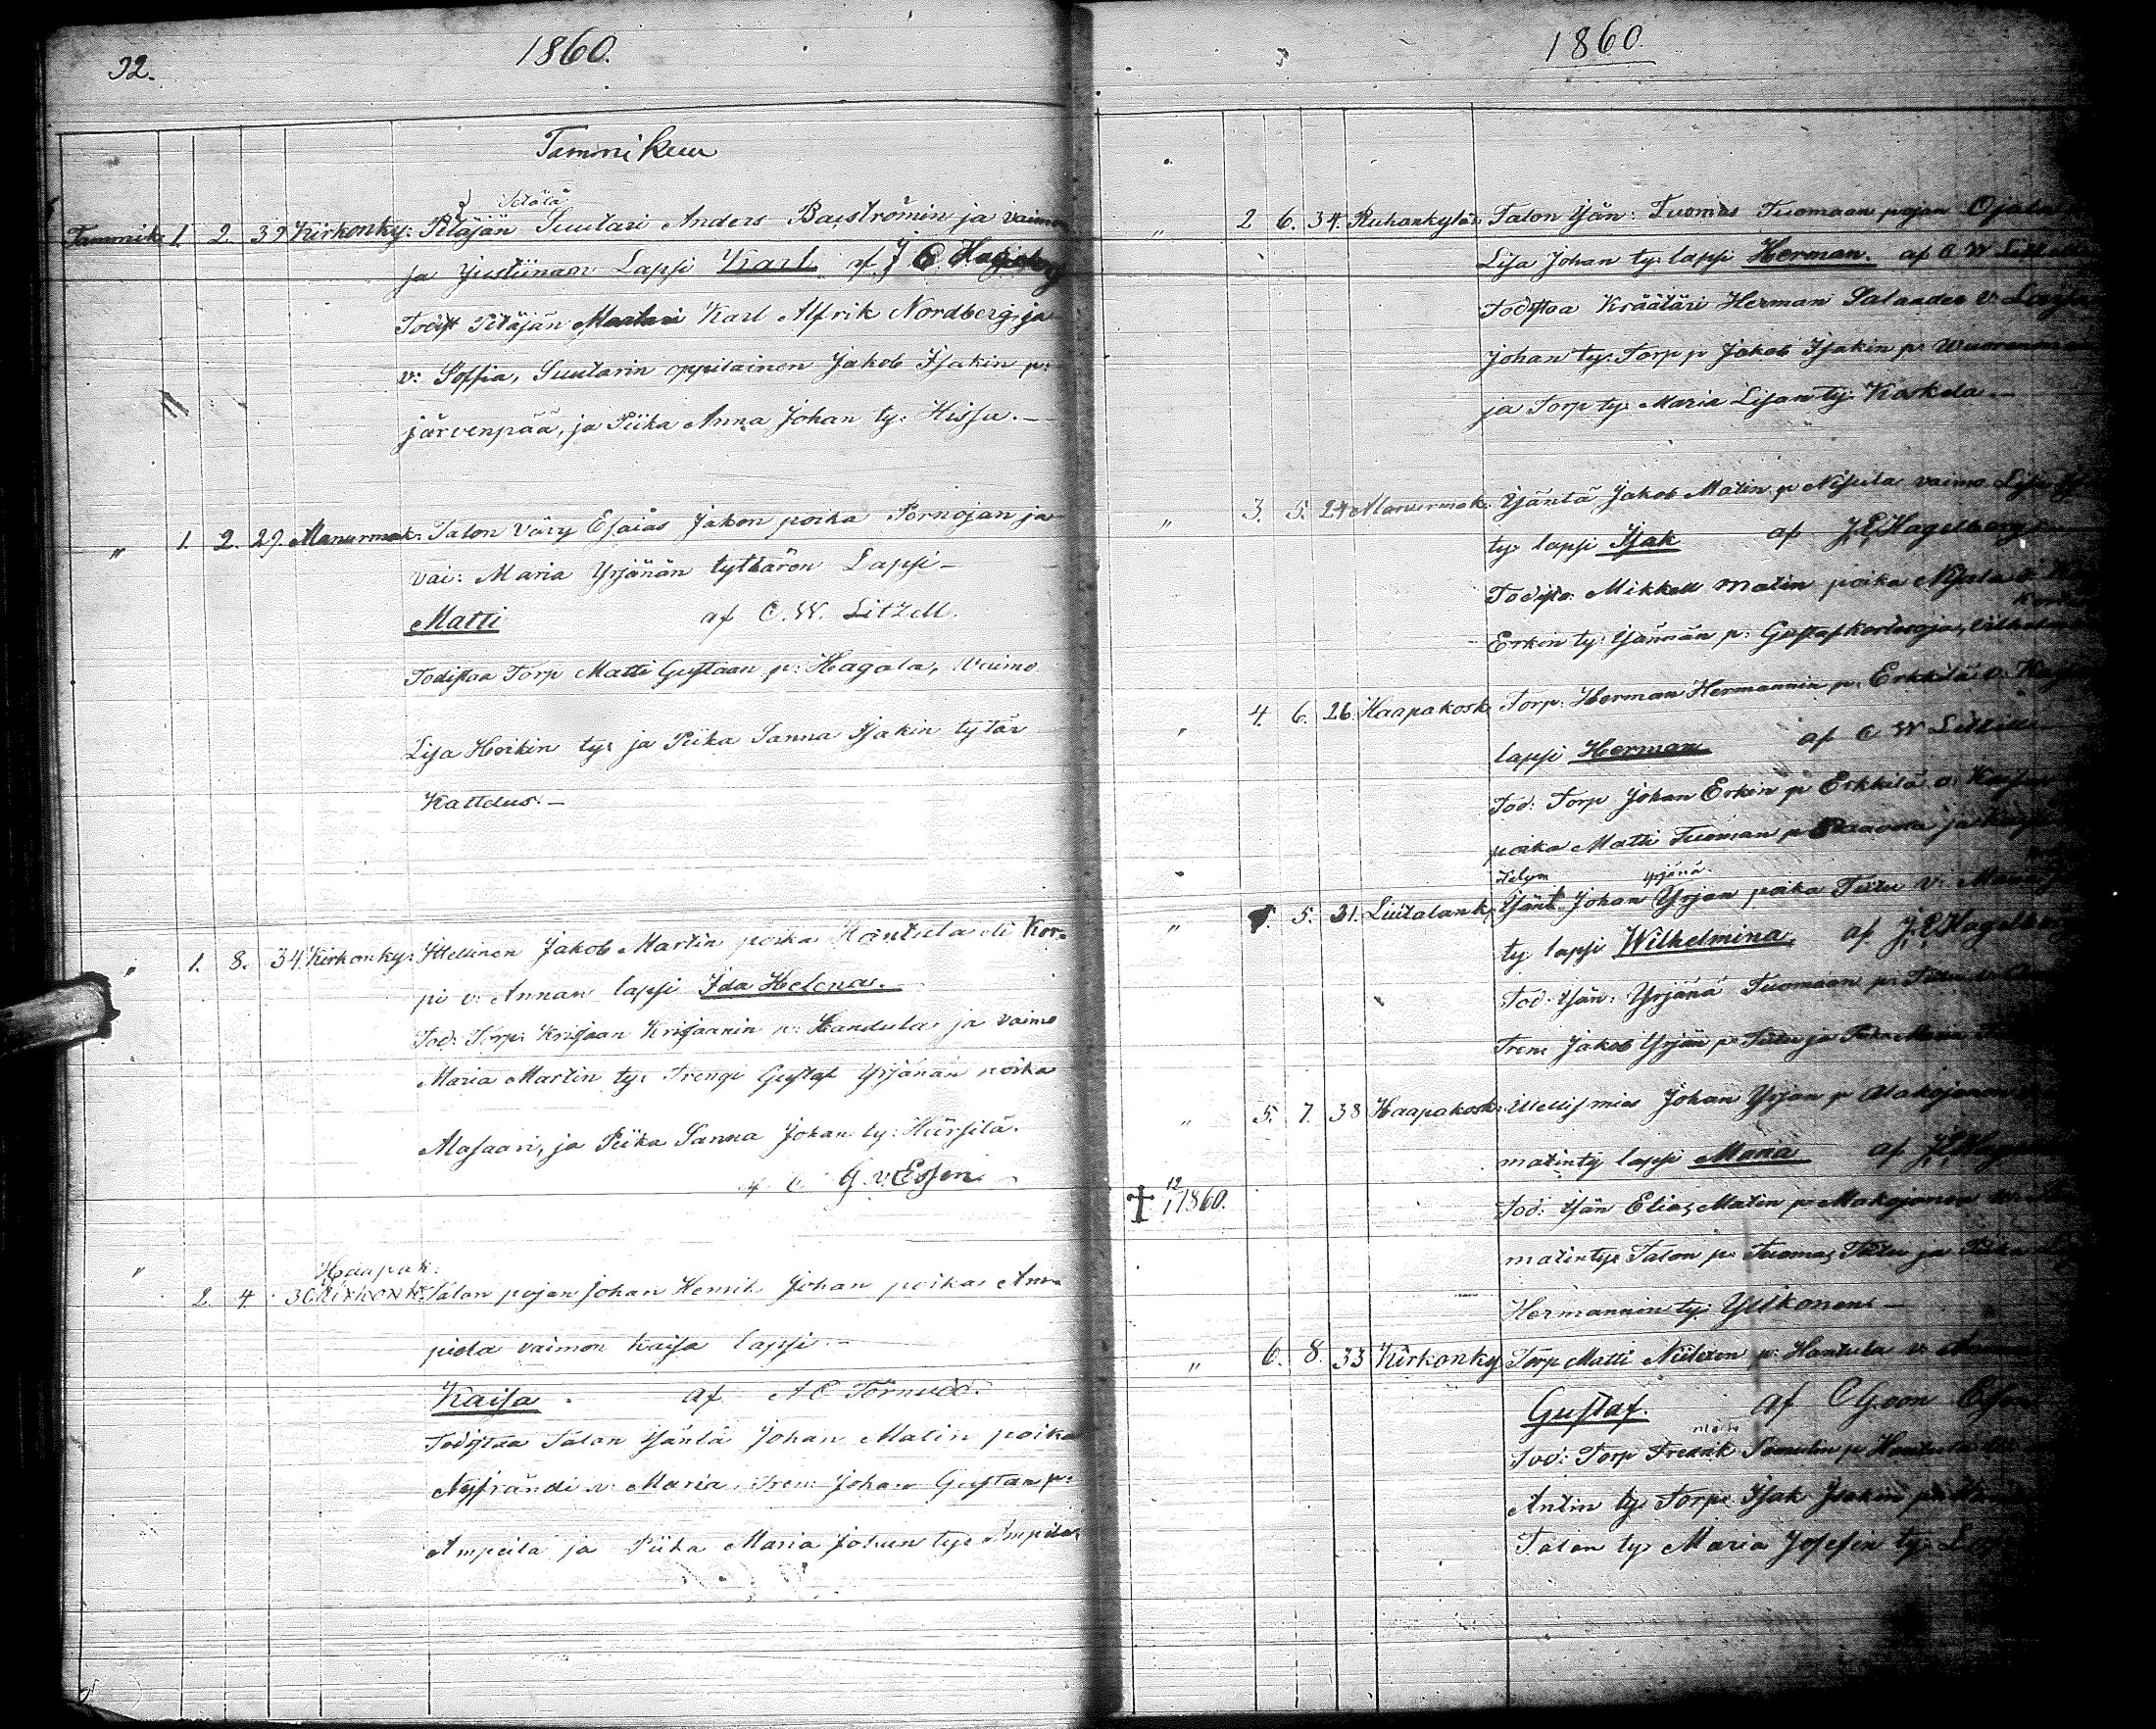 32.
1860.
Tammikuu
Pitäjän
Tammik. 1. 2. 39 Kirkonky: Pitäjän Suutari Anders Baeströmin ja vaimon
ja Justiinan Lapsi Karl af J E Hagelberg
Todist Pitäjän Maalari Karl Alfrik Nordberg ja
v: Soffia, Suutarin oppilainen Jakob Isakin p:
järvenpää, ja Piika Anna Johan ty: Hissu. –
" 1. 2. 29. Manurmak: Talon Väry Esaias Jakon poika Pernojan ja
vai: Maria Yrjänän tyttären Lapsi –
Matti af C. W. Litzell.
Todistaa Torp Matti Gustaan p: Hagala, Vaimo
Lisa Heikin ty: ja Piika Sanna Isakin tytär
Kattelus. –
" 1. 8. 34. Kirkonky: Ittellinen Jakob Martin poika Hantula eli Kor-
pi v: Annan lapsi Ida Helena.
Tod: Torp: Kristaan Kristaanin p: Handula ja vaimo
Maria Martin ty: Trengi Gustaf Yrjänän poika
Alasaari, ja Piika Sanna Johan ty: Hursilä.
af C G v: Essen
Haapak:
" 2. 4 30 Kirkonk: Talon pojan Johan Henrik Johan poika Am-
piela vaimon Kaisa lapsi –
Kaisa. af A E Törnudd.
Todistaa Talon Isäntä Johan Matin poika
Nysträndi v: Maria, Tren: Johan Gustan p:
Ampeila ja Piika Maria Johan ty: Ampeila
1860.
" 2 6. 34. Ruhankylän Talon Isän: Tuomas Tuomaan pojan Ojala
Lisa Johan ty: lapsi Herman. af C W Litzell
Todistaa Kräätäri Herman Salander v:
Johan ty: Torp p Jakob Isakin p:
ja Torp ty: Maria Lisan ty: Koskela. –
" 3. 5. 24 Manurmak: Isäntä Jakob Matin p Nisula vaimo Lisa
ty: lapsi Isak af J. E. Hagelberg
Todista: Mikkell Matin poika Nisula
Erkin ty: Isännän p: Gustaf
" 4. 6. 26. Haapakosk: Torp: Herman Hermannin p: Erkkilä v:
lapsi Herman af C W Litzell
Tod: Torp Johan Erkin p: Erkkilä v:
poika Matti Tuoman p: ja
Talon Yrjänä.
" 5. 31. Liitalank: Isänt. Johan Yrjan poika Tiitu v: Maria
ty lapsi Wilhelmina, af J. E. Hagelberg
Tod: Isän: Yrjänä Tuomaan p:
Tren: Jakob Yrjän p: ja Piika
" 5. 7. 38 Haapakosk: Ittellis mies Johan Yrjan p Alakojonen
matin ty lapsi Maria af J. E. Hagelberg
✝ 12/1 1860.
Tod: Isän Elias Matin p:
matin ty: Talon p: Tuomas Tiitu ja
Hermannin ty: Ylikonen –
" 6. 8. 33 Kirkonky Torp Matti Niileksen p: Hantula v:
Gustaf. af C G von Essen
Tod: Torp Fredrik p: Hantula
Antin ty: Torp: Isak Isakin p:
Talon ty: Maria Josefin ty: